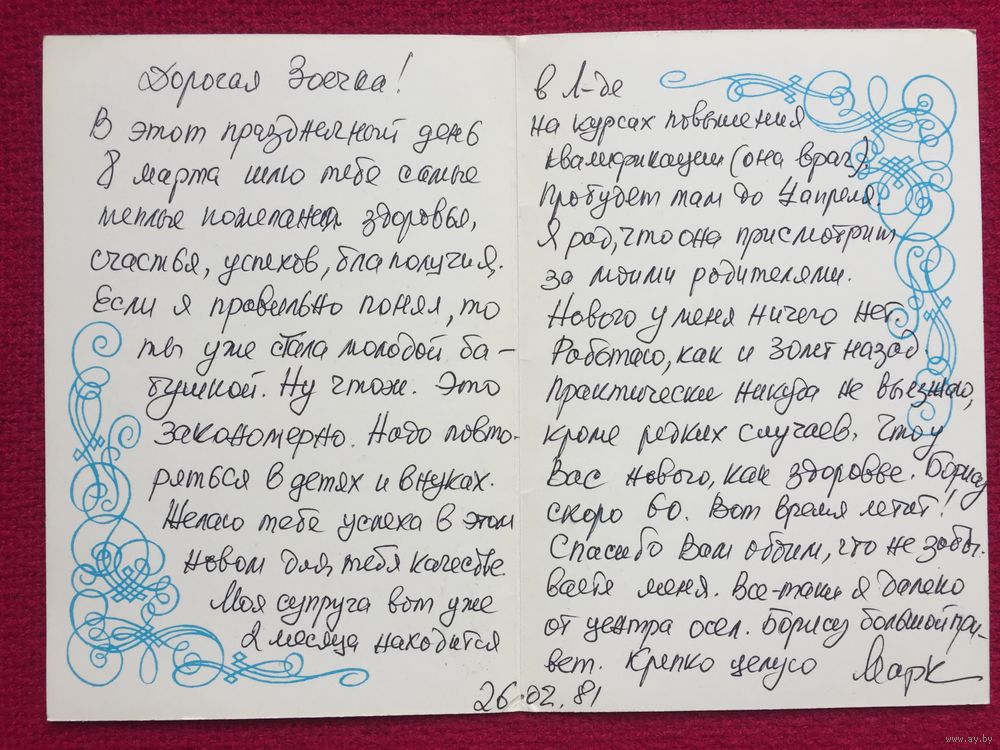 Дорогая Зоечка!
В этот праздничный день
8 марта шлю тебе самые
теплые пожелания здоровья,
счастья, успехов, благополучия.
Если я правильно понял, то
ты уже стала молодой ба-
бушкой. Ну чтож. Это
закономерно. Надо повто-
ряться в детях и внуках.
Желаю тебе успеха в этом
новом для тебя качестве.
Моя супруга вот уже
2 месяца находится
в Л-де
на курсах повышения
квалификации (она врач).
Пробудет там до 4 апреля.
Я рад, что она присмотрит
за моими родителями.
Нового у меня ничего нет.
Работаю, как и 30 лет назад.
Практически никуда не выезжаю,
кроме редких случаев. Что у
Вас нового, как здоровье. Борису
скоро 60. Вот время летит!
Спасибо Вам обоим, что не забы-
ваете меня. Все-таки я далеко
от центра осел. Борису большой при-
вет. Крепко целую Марк
26.02.81
www.ay.by